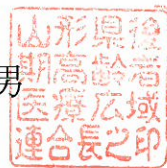 男
山形県後
期高齢者
医療広域
連合長之印